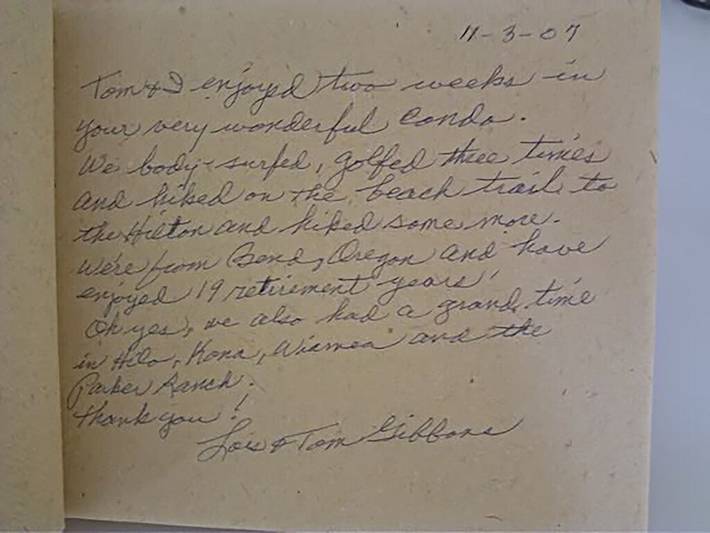 11-3-07
Tom & I enjoyed two weeks in
your very wonderful condo.
We body-surfed, golfed three times
and hiked on the beach trail to
the Hilton and hiked some more.
We're from Bend, Oregon and have
enjoyed 19 retirement years!
Oh yes, we also had a grand time
in Hilo, Kona, Wiamea and the
Parker Ranch.
Thank you!
Lois & Tom Gibbons